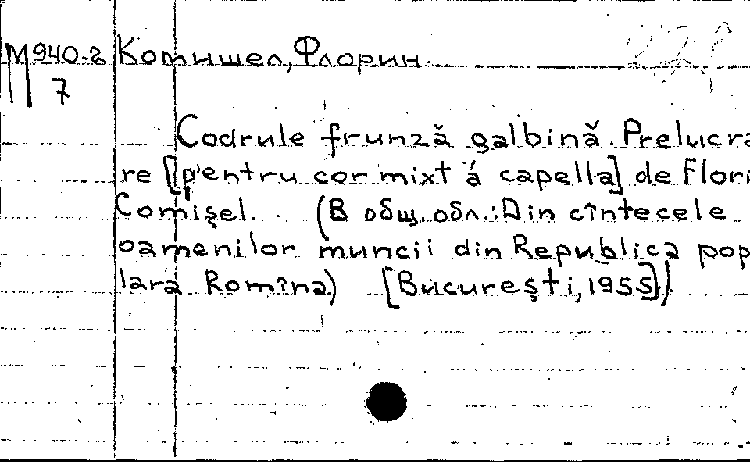 М940-г Комишел, Флорин
7
Codrule frunză galbină. Prelucra
re [pentru cor mixt á capella] de Flori
Comişel. (В общ. обл.: Din cîntecele
oamenilor muncii din Republica pop
lara Romîna) [Bucureşti, 1955]